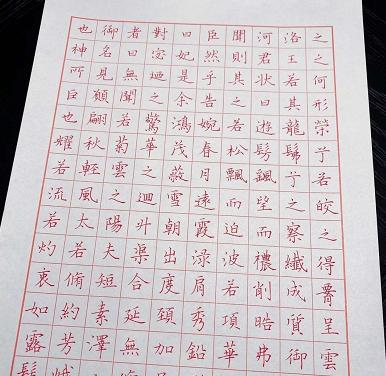 也御者對曰臣聞河洛之
神名曰宓妃然則君王之
所見無迺是乎其狀若何
臣願聞之余告之曰其形
也翩若驚鴻婉若遊龍榮
耀秋菊華茂春松髣髴兮
若輕雲之蔽月飄飖兮若
流風之迴雪遠而望之皎
若太陽升朝霞迫而察之
灼若夫渠出渌波襛纖得
衷脩短合度肩若削成
如約素延頸秀項皓質呈
露芳澤無加鉛華弗御雲